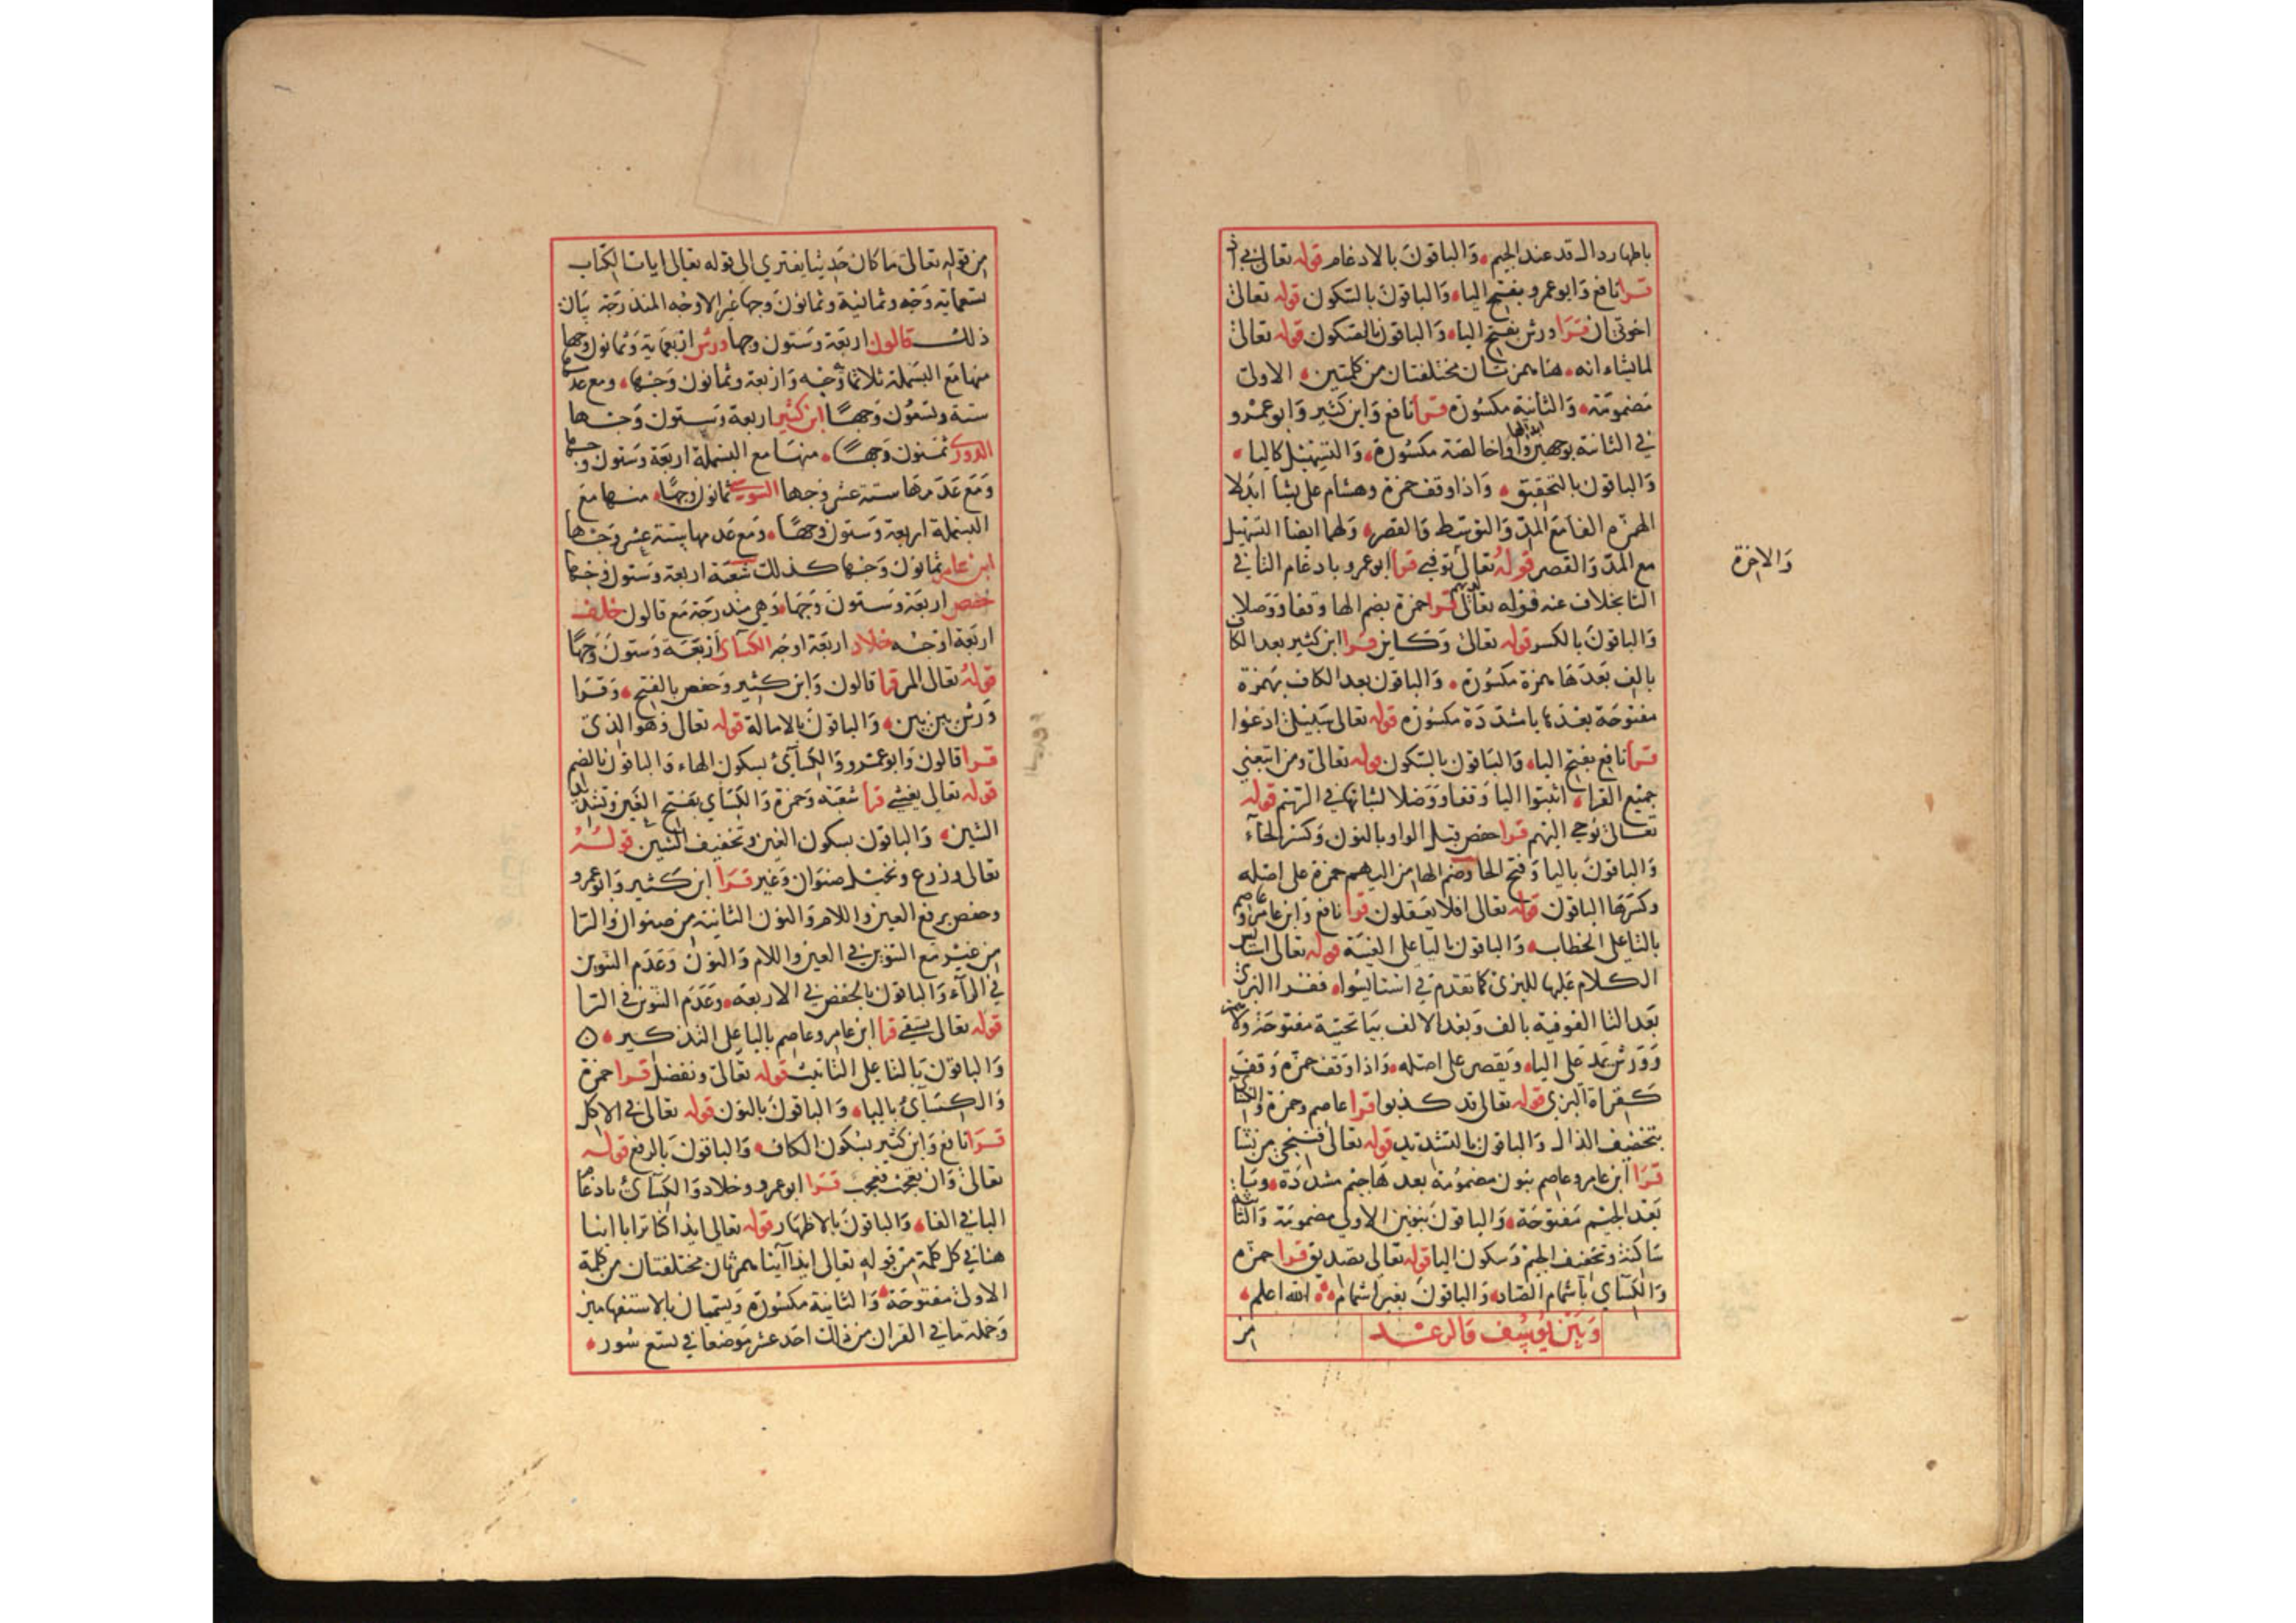 باظهار دال قد عند الجيم والباقون بالادغام قوله تعالى بي اذ
قرا نافع وابو عمرو بفتح الياء والباقون بالسكون قوله تعالى
اخوتي ان قرا ورش بفتح الياء والباقون بالسكون قوله تعالى
لما يشاء انه هنا همزتان مختلفتان من كلمتين الاولى
مضمومة والثانية مكسورة قرا نافع وابن كثير وابو عمرو
في الثانية بوجهين ابدالها واوا خالصة مكسورة والتسهيل كاليا
والباقون بالتحقيق واذا وقف حمزة وهشام على يشا ابدلا
الهمزة الفا مع المد والتوسط والقصر ولهما ايضا التسهيل
مع المد والقصر قوله تعالى توفني قرا ابو عمرو بادغام التا في
التا بخلاف عنه قوله تعالى لديهم قرا حمزة بضم الها وقفا ووصلا
والباقون بالكسر قوله تعالى وكاين قرا ابن كثير بعد الكاف
بالف بعدها همزة مكسورة والباقون بعد الكاف بهمزة
مفتوحة بعدها يا مشددة مكسورة قوله تعالى سبيلي ادعوا
قرا نافع بفتح الياء والباقون بالسكون قوله تعالى ومن اتبعني
جميع القراء اثبتوا اليا وقفا ووصلا لثباتها في الرسم قوله
تعالى نوحي اليهم قرا حفص قبل الواو بالنون وكسر الحاء
والباقون باليا وفتح الحا وضم الها من اليهم حمزة على اصله
وكسرها الباقون قوله تعالى افلا يعقلون قرا نافع وابن عامر وعاصم
بالتا على الخطاب والباقون باليا على الغيبة قوله تعالى استايس
الكلام عليها للبزي كما تقدم في استايسوا فقرا البزي
بعد التا الفوقية بالف وبعد الالف بيا تحتية مفتوحة ولا همز
وورش يمد على الياء ويقصر على اصله واذا وقف حمزة وقف
كقراة البزي قوله تعالى قد كذبوا قرا عاصم وحمزة والكسائي
بتخفيف الذال والباقون بالتشديد قوله تعالى فننجي من نشا
قرا ابن عامر وعاصم بنون مضمومة بعدها جيم مشددة ويا
بعد الجيم مفتوحة والباقون بنونين الاولى مضمومة والثانية
ساكنة وتخفيف الجيم وسكون اليا قوله تعالى تصديق قرا حمزة
والكسائي باشمام الصاد والباقون بغير اشمام الله اعلم
وبين يوسف والرعد
من
والاخرة
من قوله تعالى ما كان حديثا يفترى الى قوله تعالى ايات الكتاب
تسعماية وجه وثمانية وثمانون وجها غير الاوجه المندرجة بيان
ذلك قالون اربعة وستون وجها ورش اربعماية وثمانون وجها
منها مع البسملة ثلاثماية وجه واربعة وثمانون وجها ومع عدمها
ستة وتسعون وجها ابن كثير اربعة وستون وجها
الدوري ثمنون وجها منها مع البسملة اربعة وستون وجها
ومع عدمها ستة عشر وجها السوسي ثمانون وجها منها مع
البسملة اربعة وستون وجها ومع عدمها ستة عشر وجها
ابن عامر ثمانون وجها كذلك شعبة اربعة وستون وجها
حفص اربعة وستون وجها وهي مندرجة مع قالون خلف
اربعة اوجه خلاد اربعة اوجه الكسائي اربعة وستون وجها
قوله تعالى المر قرا قالون وابن كثير وحفص بالفتح وقرا
ورش بين بين والباقون بالامالة قوله تعالى وهو الذي
قرا قالون وابو عمرو والكسائي بسكون الهاء والباقون بالضم
قوله تعالى يغشي قرا شعبة وحمزة والكسائي بفتح الغين وتشديد
الشين والباقون بسكون الغين وتخفيف الشين قوله
تعالى وزرع ونخيل صنوان وغير قرا ابن كثير وابو عمرو
وحفص برفع العين واللام والنون الثانية من صنوان والرا
من غير مع التنوين في العين واللام والنون وعدم التنوين
في الراء والباقون بالخفض في الاربعة وعدم التنوين في الرا
قوله تعالى يسقى قرا ابن عامر وعاصم باليا على التذكير
والباقون بالتا على التانيث قوله تعالى ونفضل قرا حمزة
والكسائي بالياء والباقون بالنون قوله تعالى في الاكل
قرا نافع وابن كثير بسكون الكاف والباقون بالرفع قوله
تعالى وان تعجب فعجب قرا ابو عمرو وخلاد والكسائي بادغام
البا في الفاء والباقون بالاظهار قوله تعالى ايذا كنا ترابا اينا
هنا في كل كلمة من قوله تعالى ايذا اينا همزتان مختلفتان من كلمة
الاولى مفتوحة والثانية مكسورة ويسميان بالاستفهامين
وجملة ما في القران من ذلك احد عشر موضعا في تسع سور